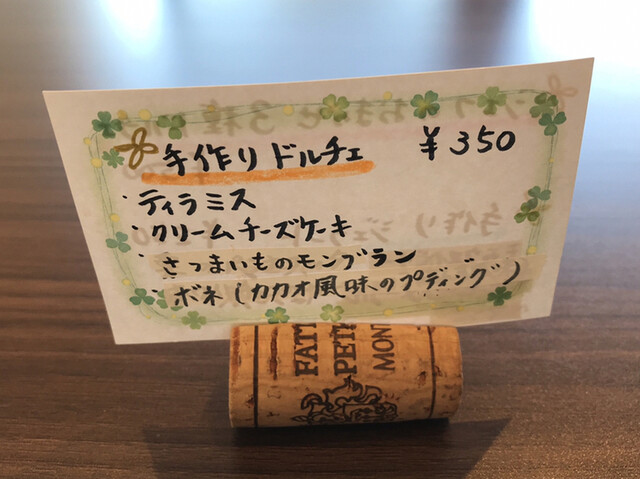 手作りドルチェ ¥350
・ティラミス
・クリームチーズケーキ
・さつまいものモンブラン
・ボネ(カカオ風味のプディング)
FATT
PET
MON